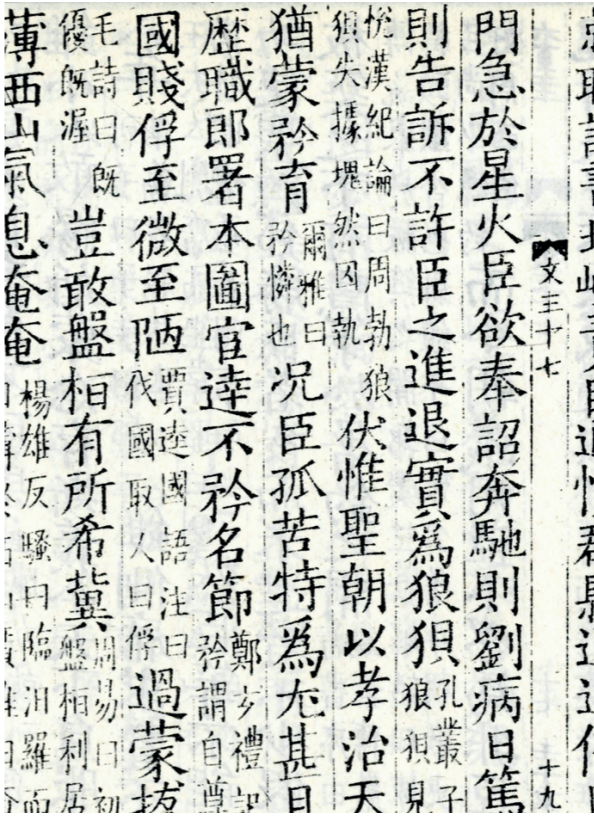 文三十七
十九
門急於星火臣欲奉詔奔馳則劉病日篤
則告訴不許臣之進退實爲狼狽孔叢子
狼狽見
悅漢紀論曰周勃狼
狽失據塊然囚執伏惟聖朝以孝治天
猶蒙矜育爾雅曰
矜憐也况臣孤苦特爲尤甚且
歴職郎署本圖官達不矜名節鄭玄禮記
矜謂自尊
國賤俘至微至陋賈逵國語注曰
伐國取人曰俘過蒙拔
毛詩曰旣
優旣渥豈敢盤桓有所希冀周易曰初
盤桓利居
薄西山氣息奄奄楊雄反騷曰臨汨羅而